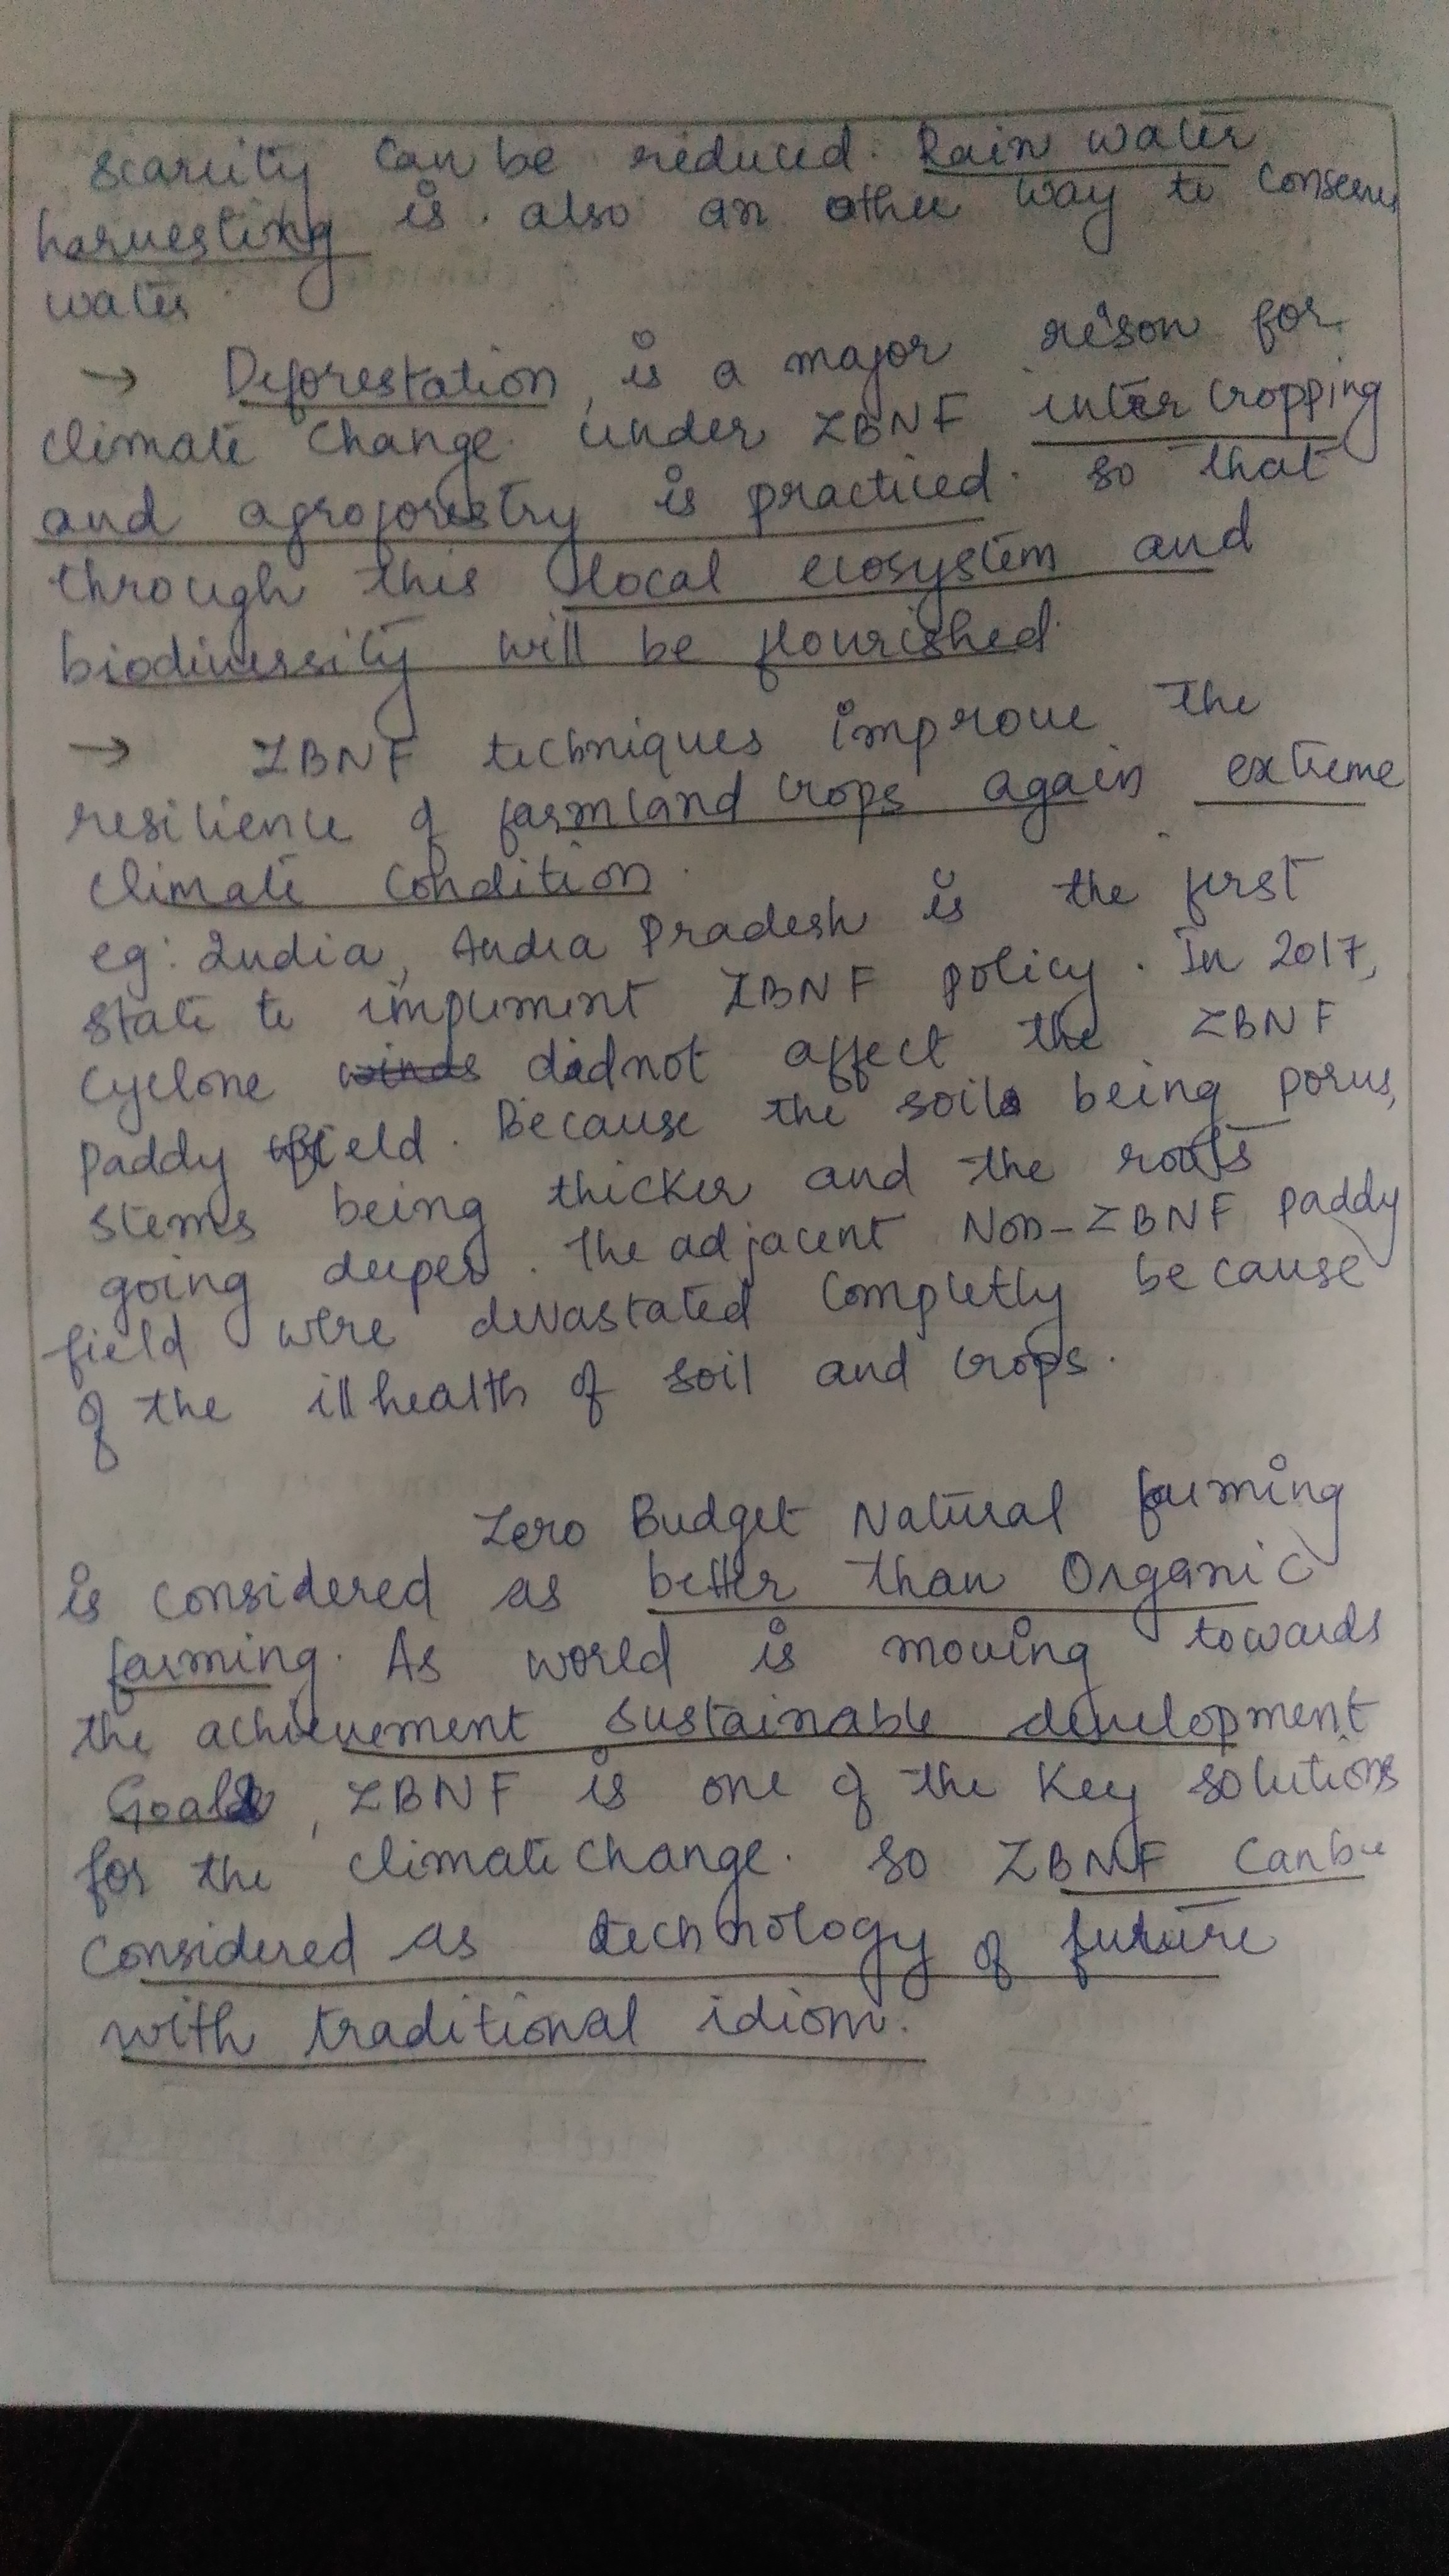 scarcity can be reduced. Rain water
harvesting is also an other way to conserve
water.
→ Deforestation, is a major reason for
climate change. under ZBNF inter cropping
and agroforestry is practiced. so that
through this local ecosystem and
biodiversity will be flourished.
→ ZBNF techniques improve the
resilience of farmland crops again extreme
climate condition.
eg: India, Andra Pradesh is the first
state to implement ZBNF policy. In 2017,
cyclone winds didnot affect the ZBNF
paddy field. Because the soil being porus,
stems being thicker and the roots
going deeper. The adjacent Non-ZBNF paddy
field were devastated completly because
of the ill health of soil and crops.
Zero Budget Natural farming
is considered as better than Organic
farming. As world is moving towards
the achievement sustainable development
Goals, ZBNF is one of the key solutions
for the climate change. so ZBNF can be
considered as technology of future
with traditional idiom.